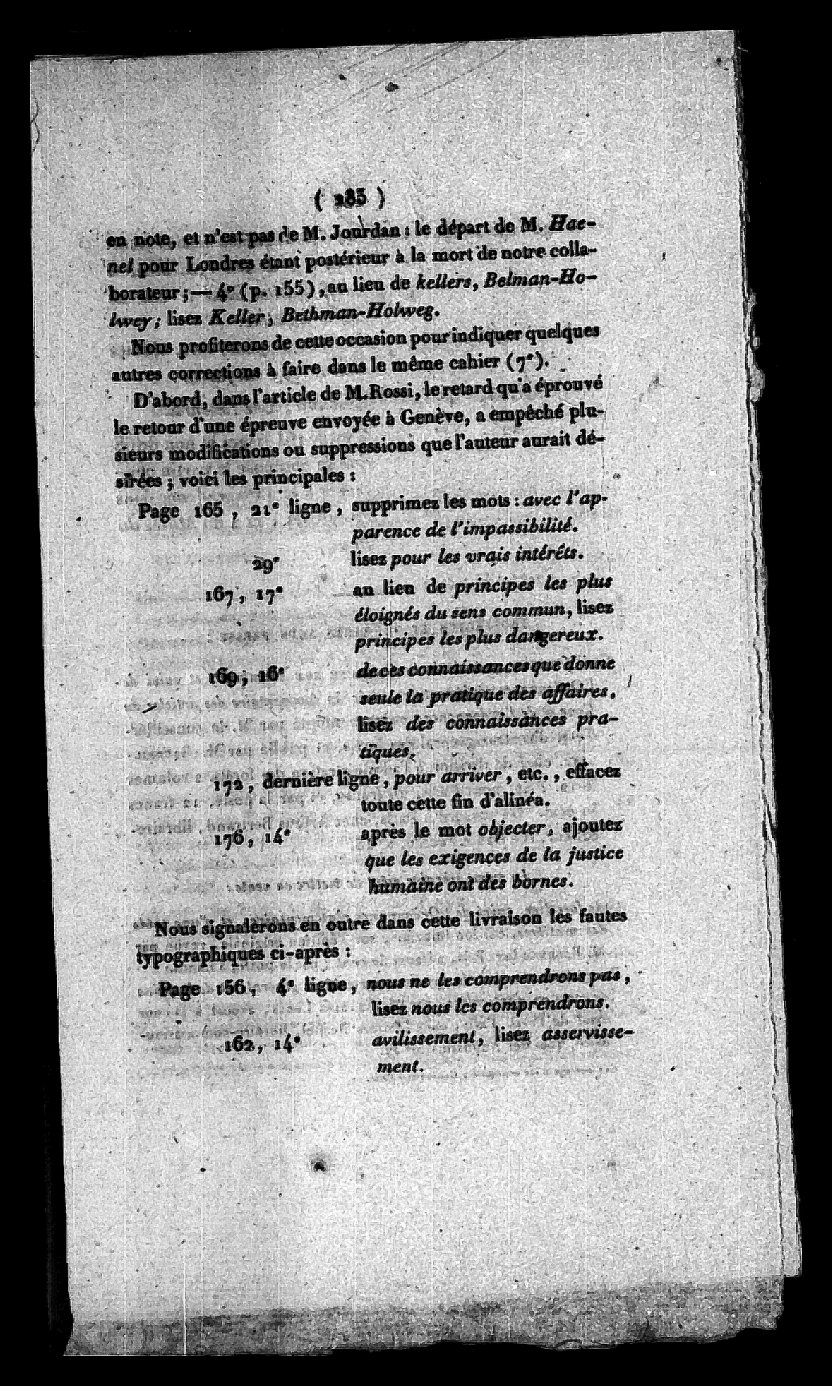 ( 285 )
en note, et n'est pas de M. Jourdan : le départ de M. Hae-
nel pour Londres étant postérieur à la mort de notre colla-
borateur ; — 4° (p. 155), au lieu de kellers, Belman-Ho-
lwey ; lisez Keller, Bethman-Holweg.
Nous profiterons de cette occasion pour indiquer quelques
autres corrections à faire dans le même cahier (7e).
D'abord, dans l'article de M. Rossi, le retard qu'a éprouvé
le retour d'une épreuve envoyée à Genève, a empêché plu-
sieurs modifications ou suppressions que l'auteur aurait dé-
sirées ; voici les principales :
Page 165 , 21e ligne , supprimez les mots : avec l'ap-
parence de l'impassibilité.
29e lisez pour les vrais intérêts.
167, 17e au lieu de principes les plus
éloignés du sens commun, lisez
principes les plus dangereux.
169, 16e de ces connaissances que donne
seule la pratique des affaires,
lisez des connaissances pra-
tiques.
172, dernière ligne, pour arriver, etc., effacez
toute cette fin d'alinéa.
176, 14e après le mot objecter, ajoutez
que les exigences de la justice
humaine ont des bornes.
Nous signalerons en outre dans cette livraison les fautes
typographiques ci-après :
Page 156, 4e ligne, nous ne les comprendrons pas,
lisez nous les comprendrons.
162, 14e avilissement, lisez asservisse-
ment.